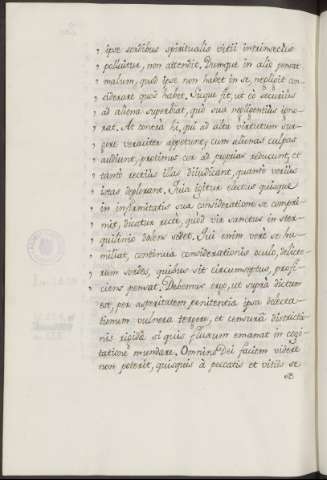 „ ipse sordibus spiritualis vitii intrinsecus
„ polluitur, non attendit. Dumque in alio pensat
„ malum, quod ipse non habet in se, negligit con-
„ siderare quod habet. Sicque fit, ut eò securius
„ ad aliena superbiat, quò sua negligentius igno-
„ rat. At contra hi, qui ad alta virtutum sur-
„ gere veraciter appetunt, cum alienas culpas
„ audiunt, protinus cor ad proprias reducunt, et
„ tantò rectius illas diiudicant, quantò verius
„ istas deplorant. Quia igitur electus quisque
„ in infirmitatis suæ consideratione se compri-
„ mit, dicatur rectè, quod vir sanctus in ster-
„ quilinio dolens sedet. Qui enim verè se hu-
„ miliat, continuæ considerationis oculo, delicto-
„ rum sordes, quibus sit circumseptus, profi-
„ ciens pensat. Debemus ergo, ut suprà dictum
est, per asperitatem penitentiæ ipsa delecta-
tionum vulnera tergere, et censura districtio-
nis rigida si quis fluxum emanat in cogi-
tatione mundare. Omninò Dei faciem videre
non poterit, quisquis à peccatis et vitiis se